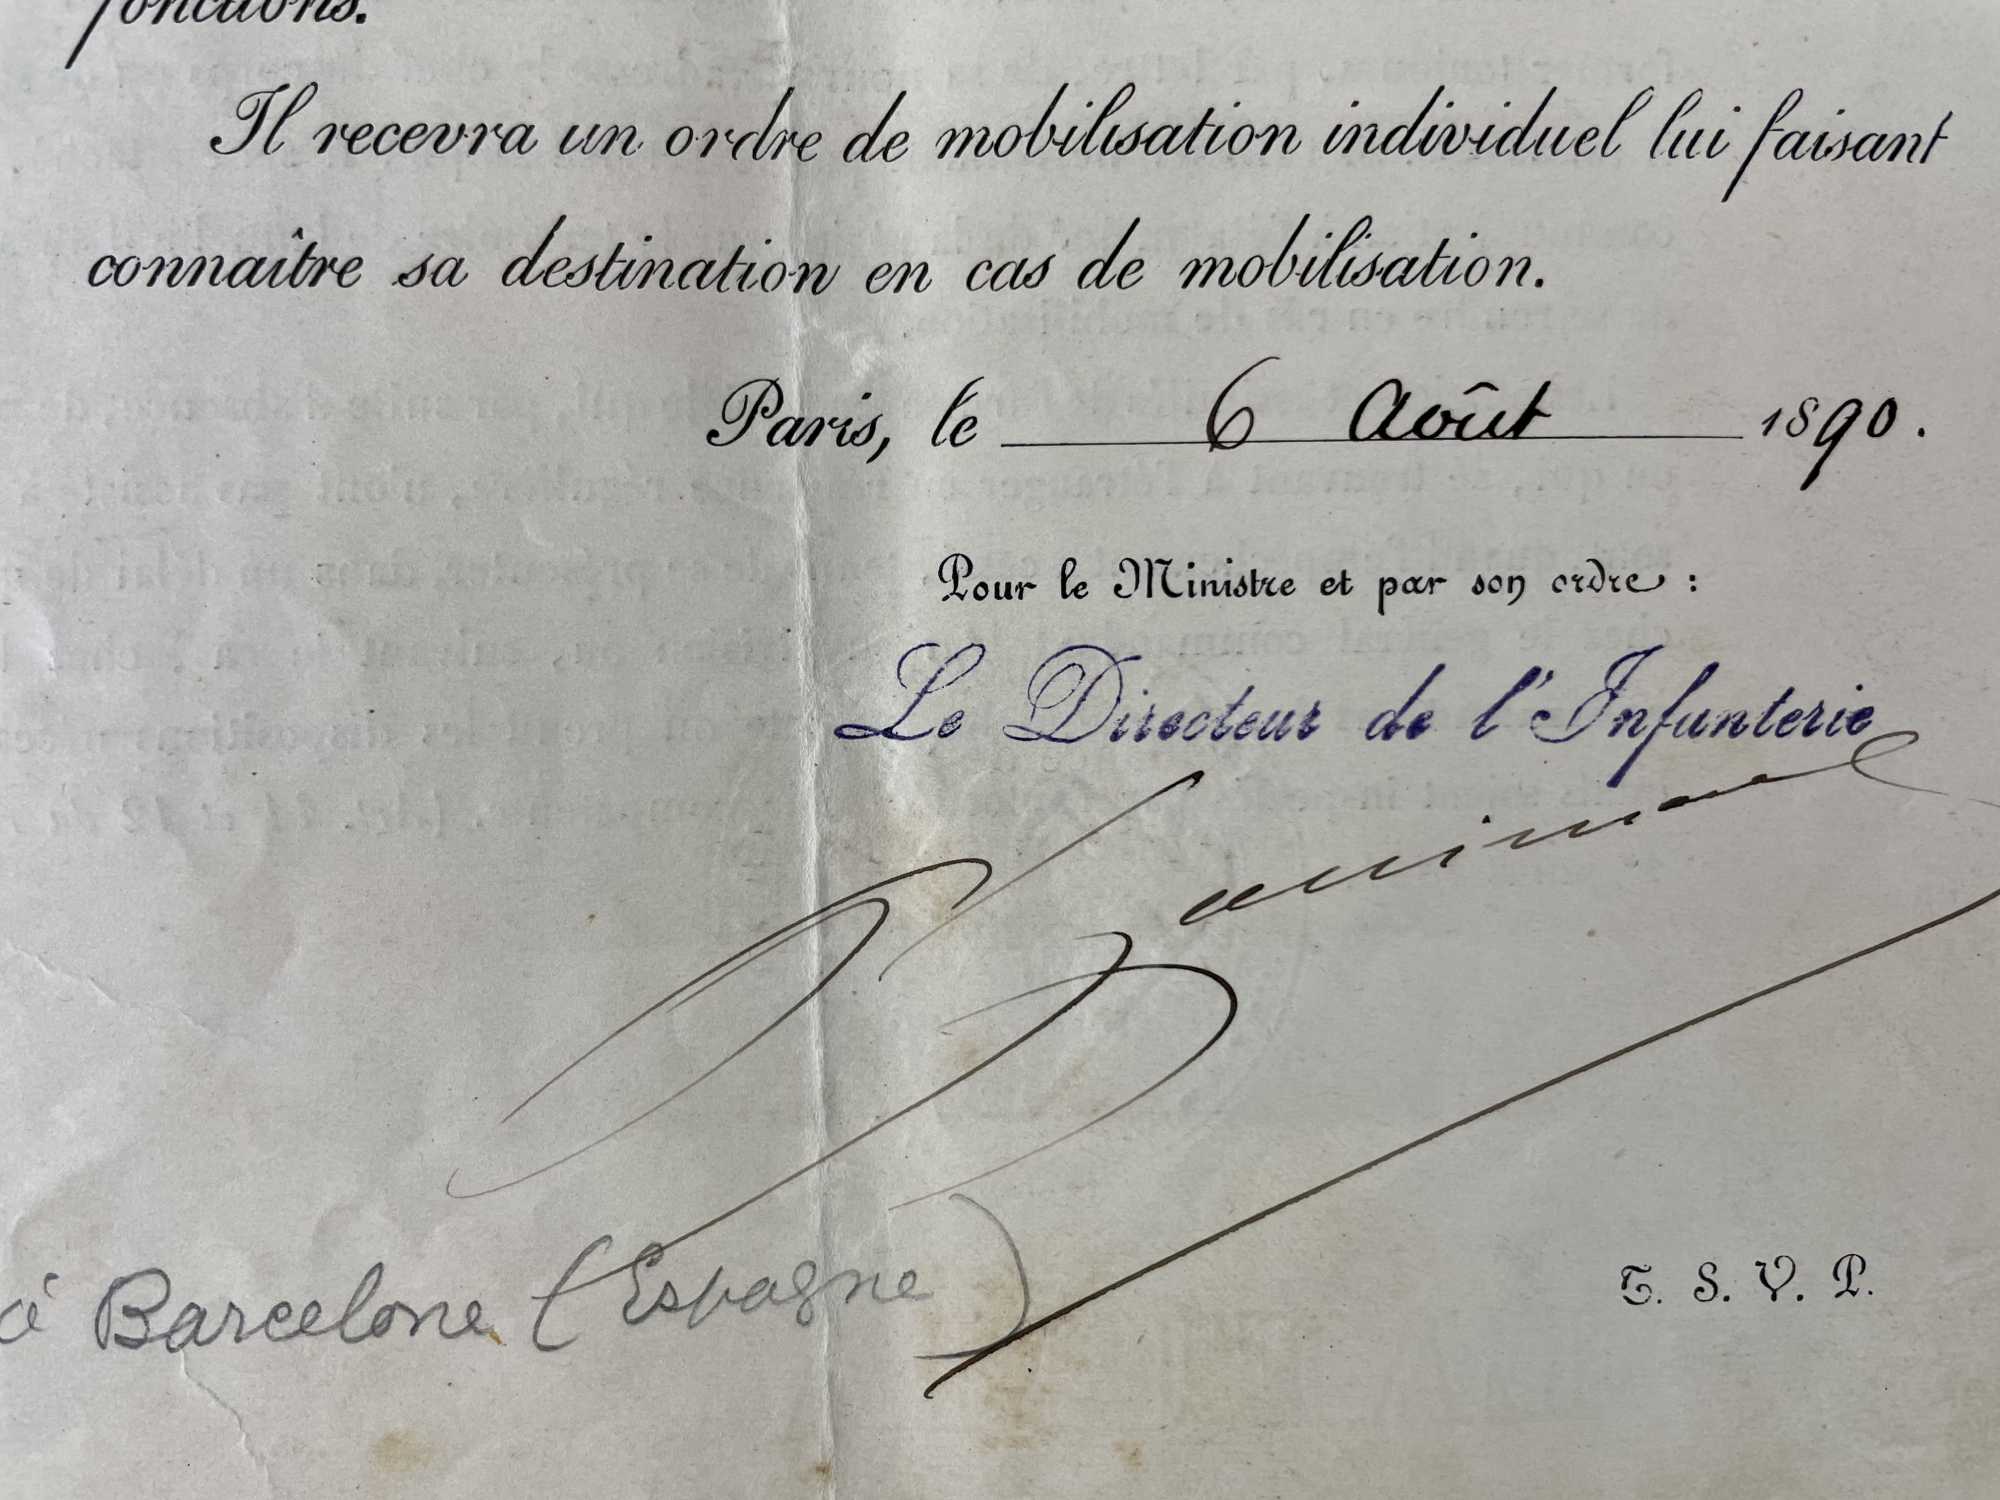 fonctions.
Il recevra un ordre de mobilisation individuel lui faisant
connaître sa destination en cas de mobilisation.
Paris, le 6 Août 1890.
Pour le Ministre et par son ordre :
Le Directeur de l'Infanterie
à Barcelone (Espagne)
T. S. V. P.